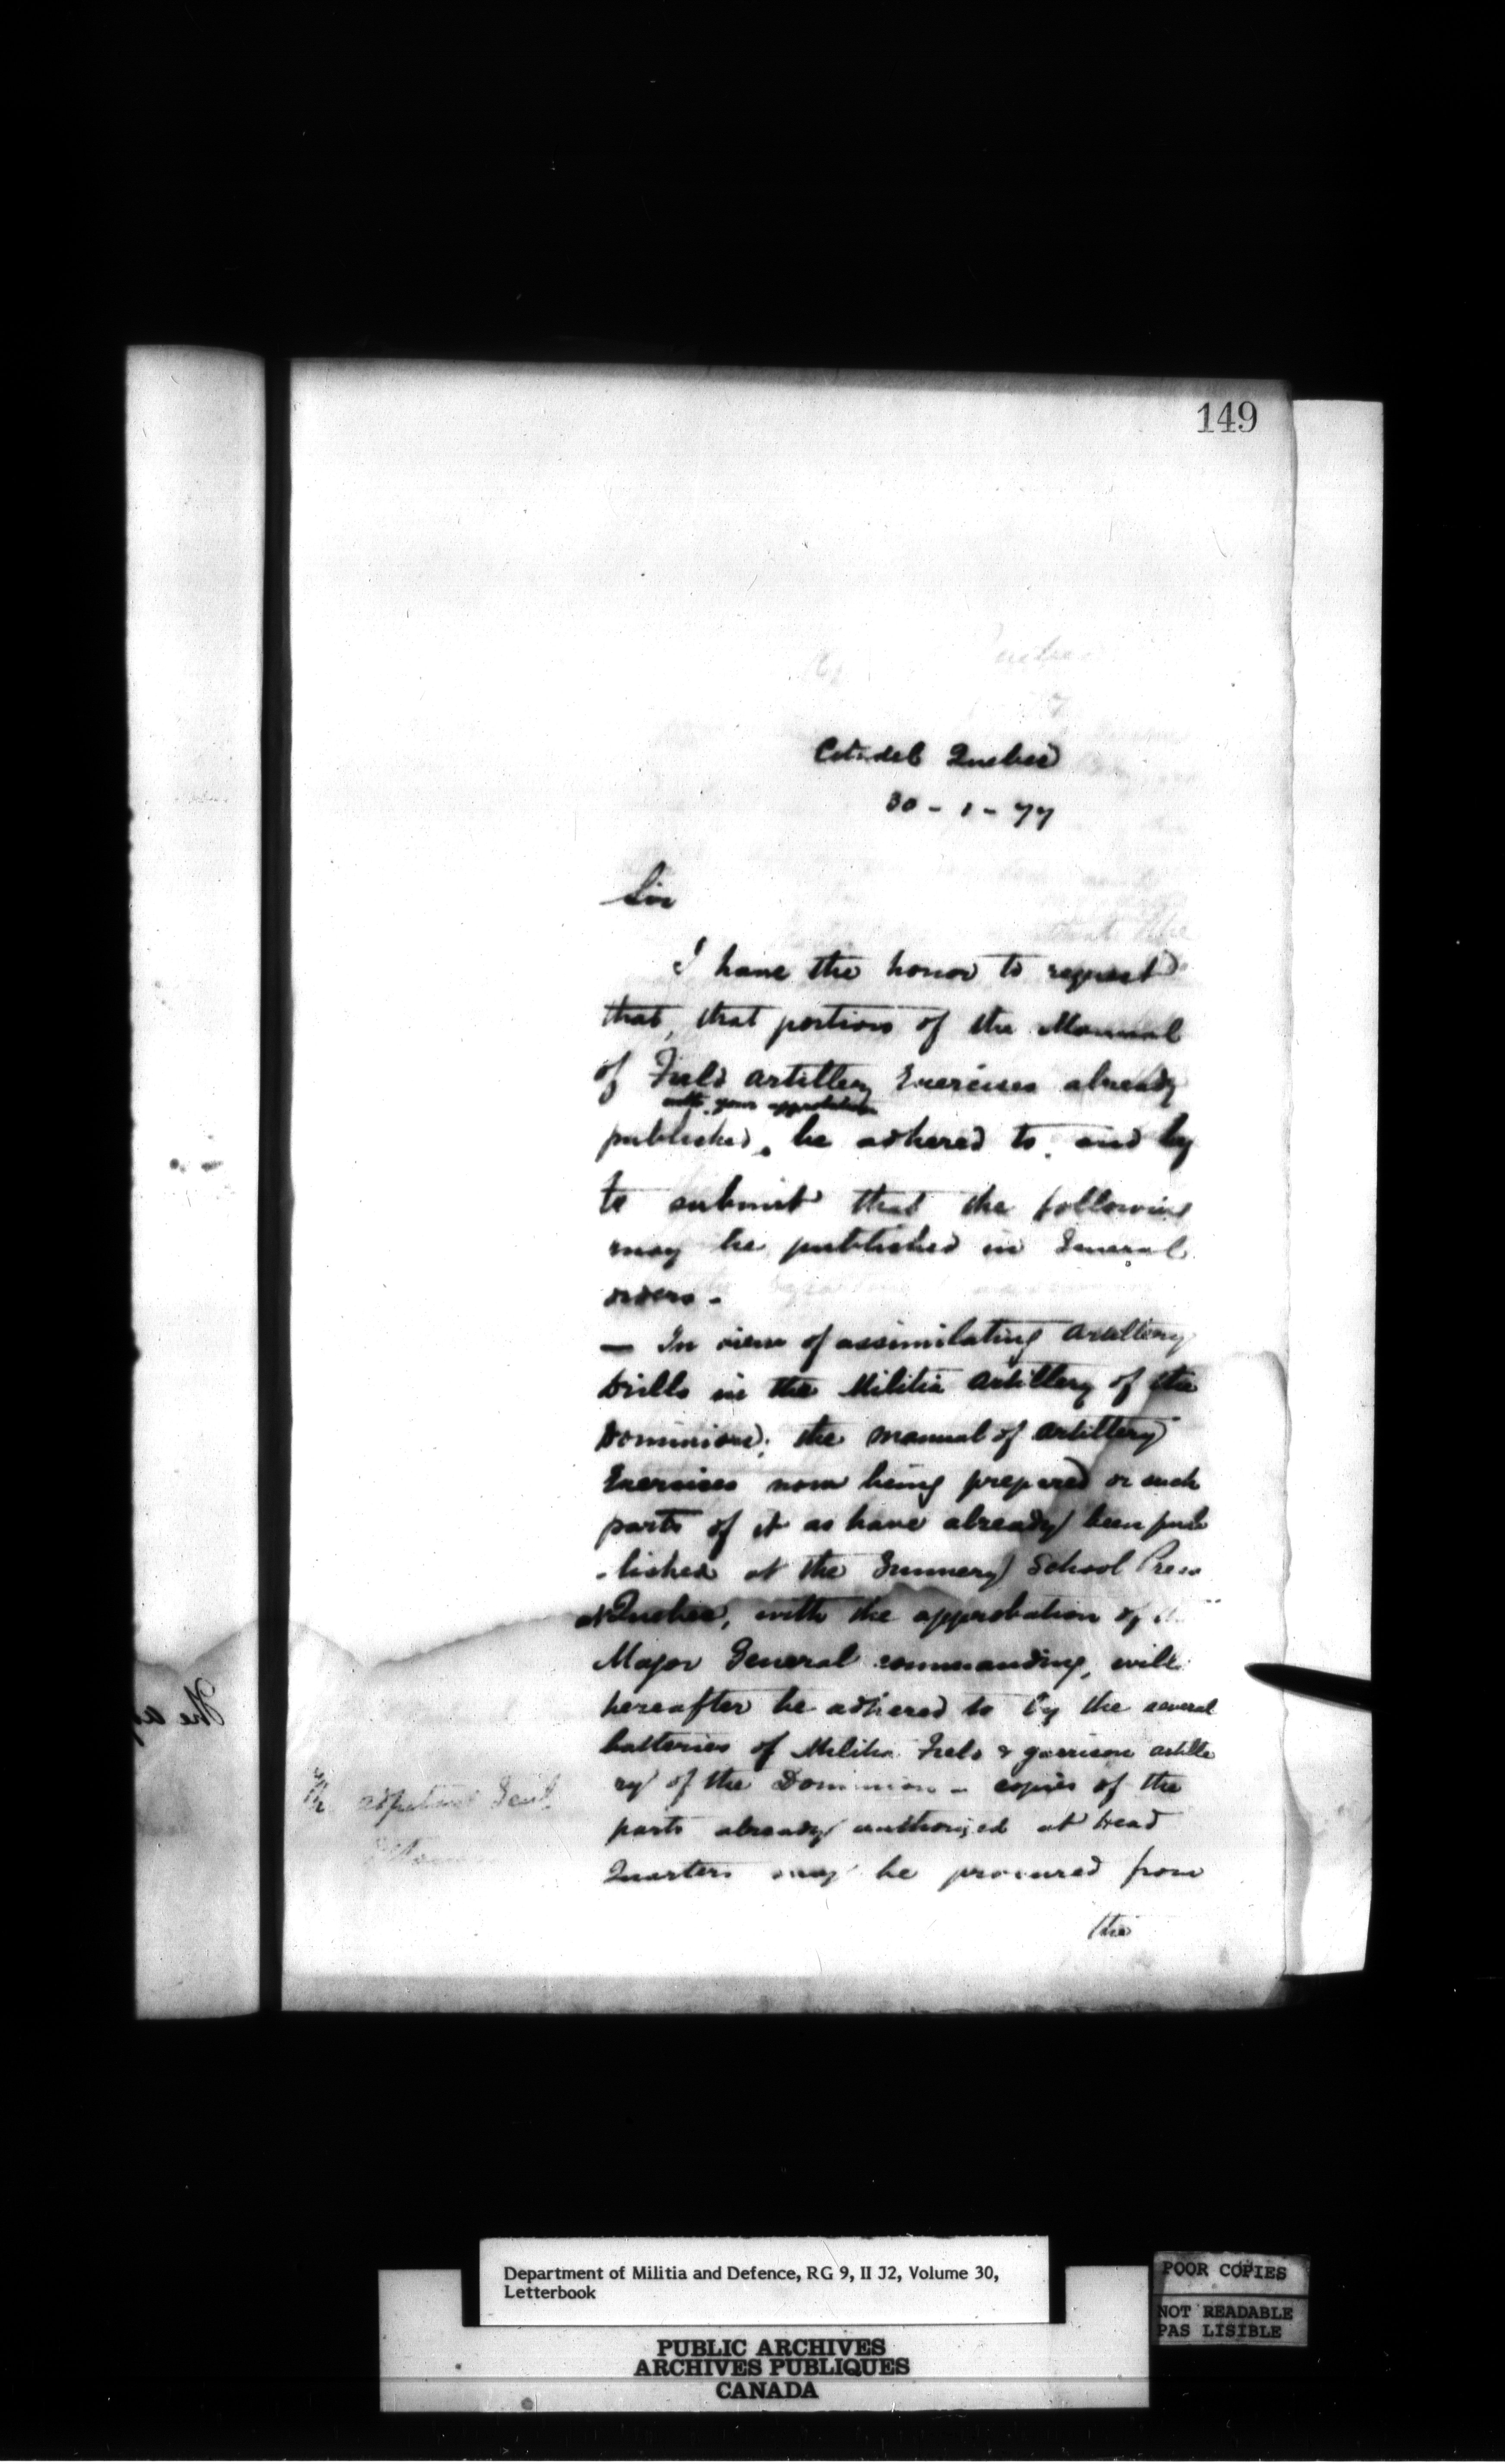 149
Citadel Quebec
30 - 1 - 77
Sir
I have the honor to request
that, that portion of the Manual
of Field Artillery Exercises already
with your approbation
published, be adhered to. and beg
to submit that the following
may be published in General
orders -
— In view of assimilating Artillery
Drills in the Militia Artillery of the
Dominion; the Manual of Artillery
Exercises now being prepared or such
parts of it as have already been pub
- lished at the Gunnery School Press
Quebec, with the approbation of
Major General commanding, will
hereafter be adhered to by the several
batteries of Militia Field & garrison artille
ry of the Dominion - copies of the
parts already authorized at Head
Quarters may be procured from
the
adjutant Genl.
Department of Militia and Defence, RG 9, II J2, Volume 30,
Letterbook
PUBLIC ARCHIVES
ARCHIVES PUBLIQUES
CANADA
POOR COPIES
NOT READABLE
PAS LISIBLE